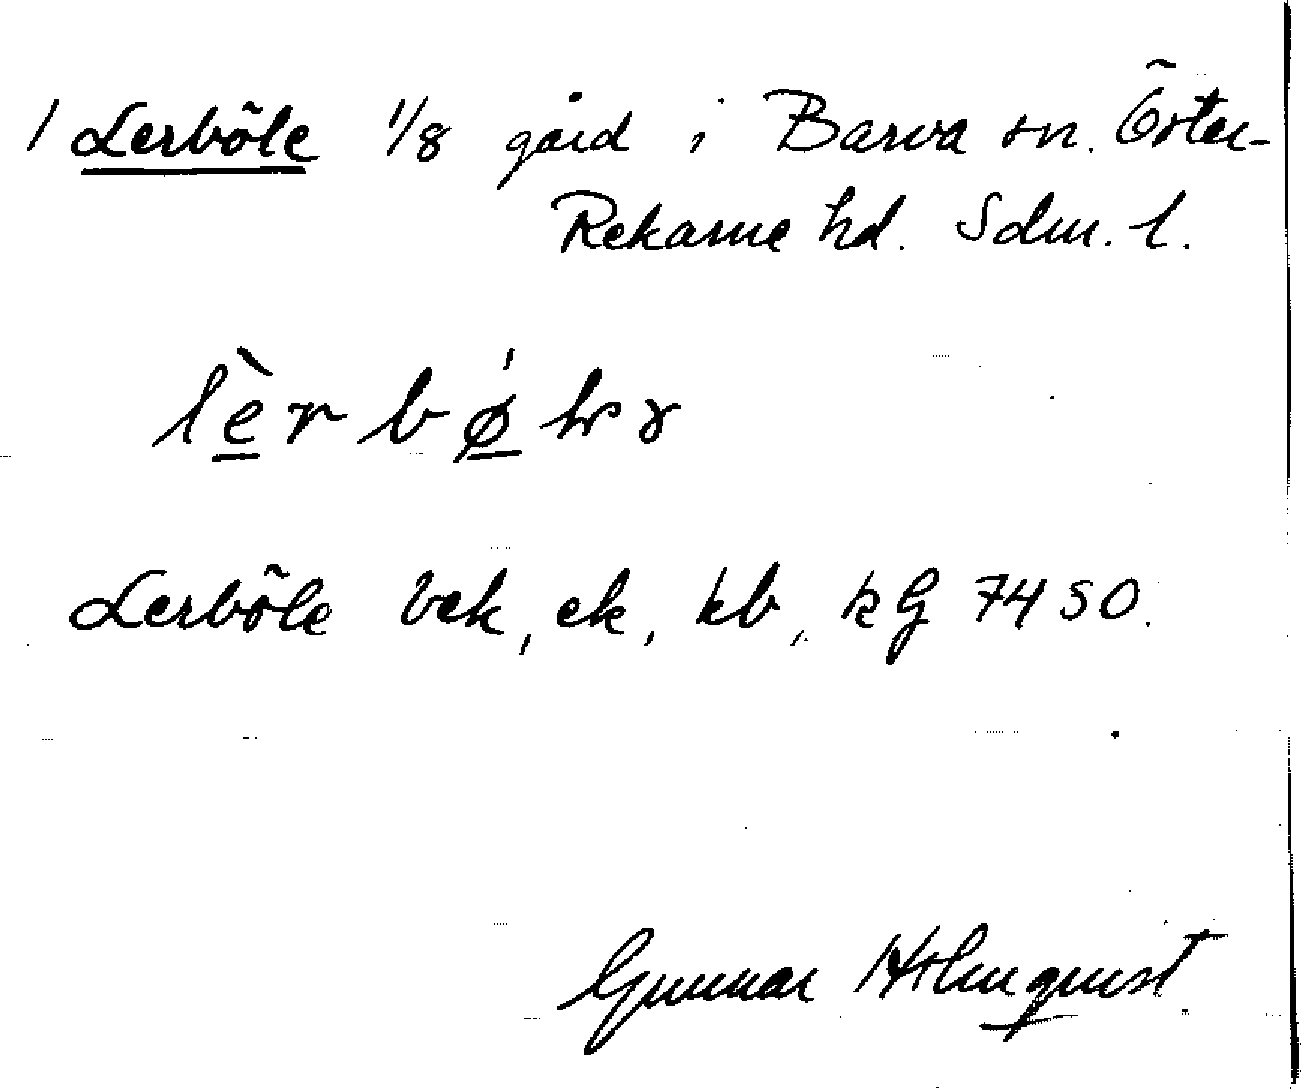 1 Lerböle 1/8 gård i Barva sn. Öster-
Rekarne hd. Sdm. l.
Lerböle bek, ek, kb, kG 7450.
Gunnar Holmqvist